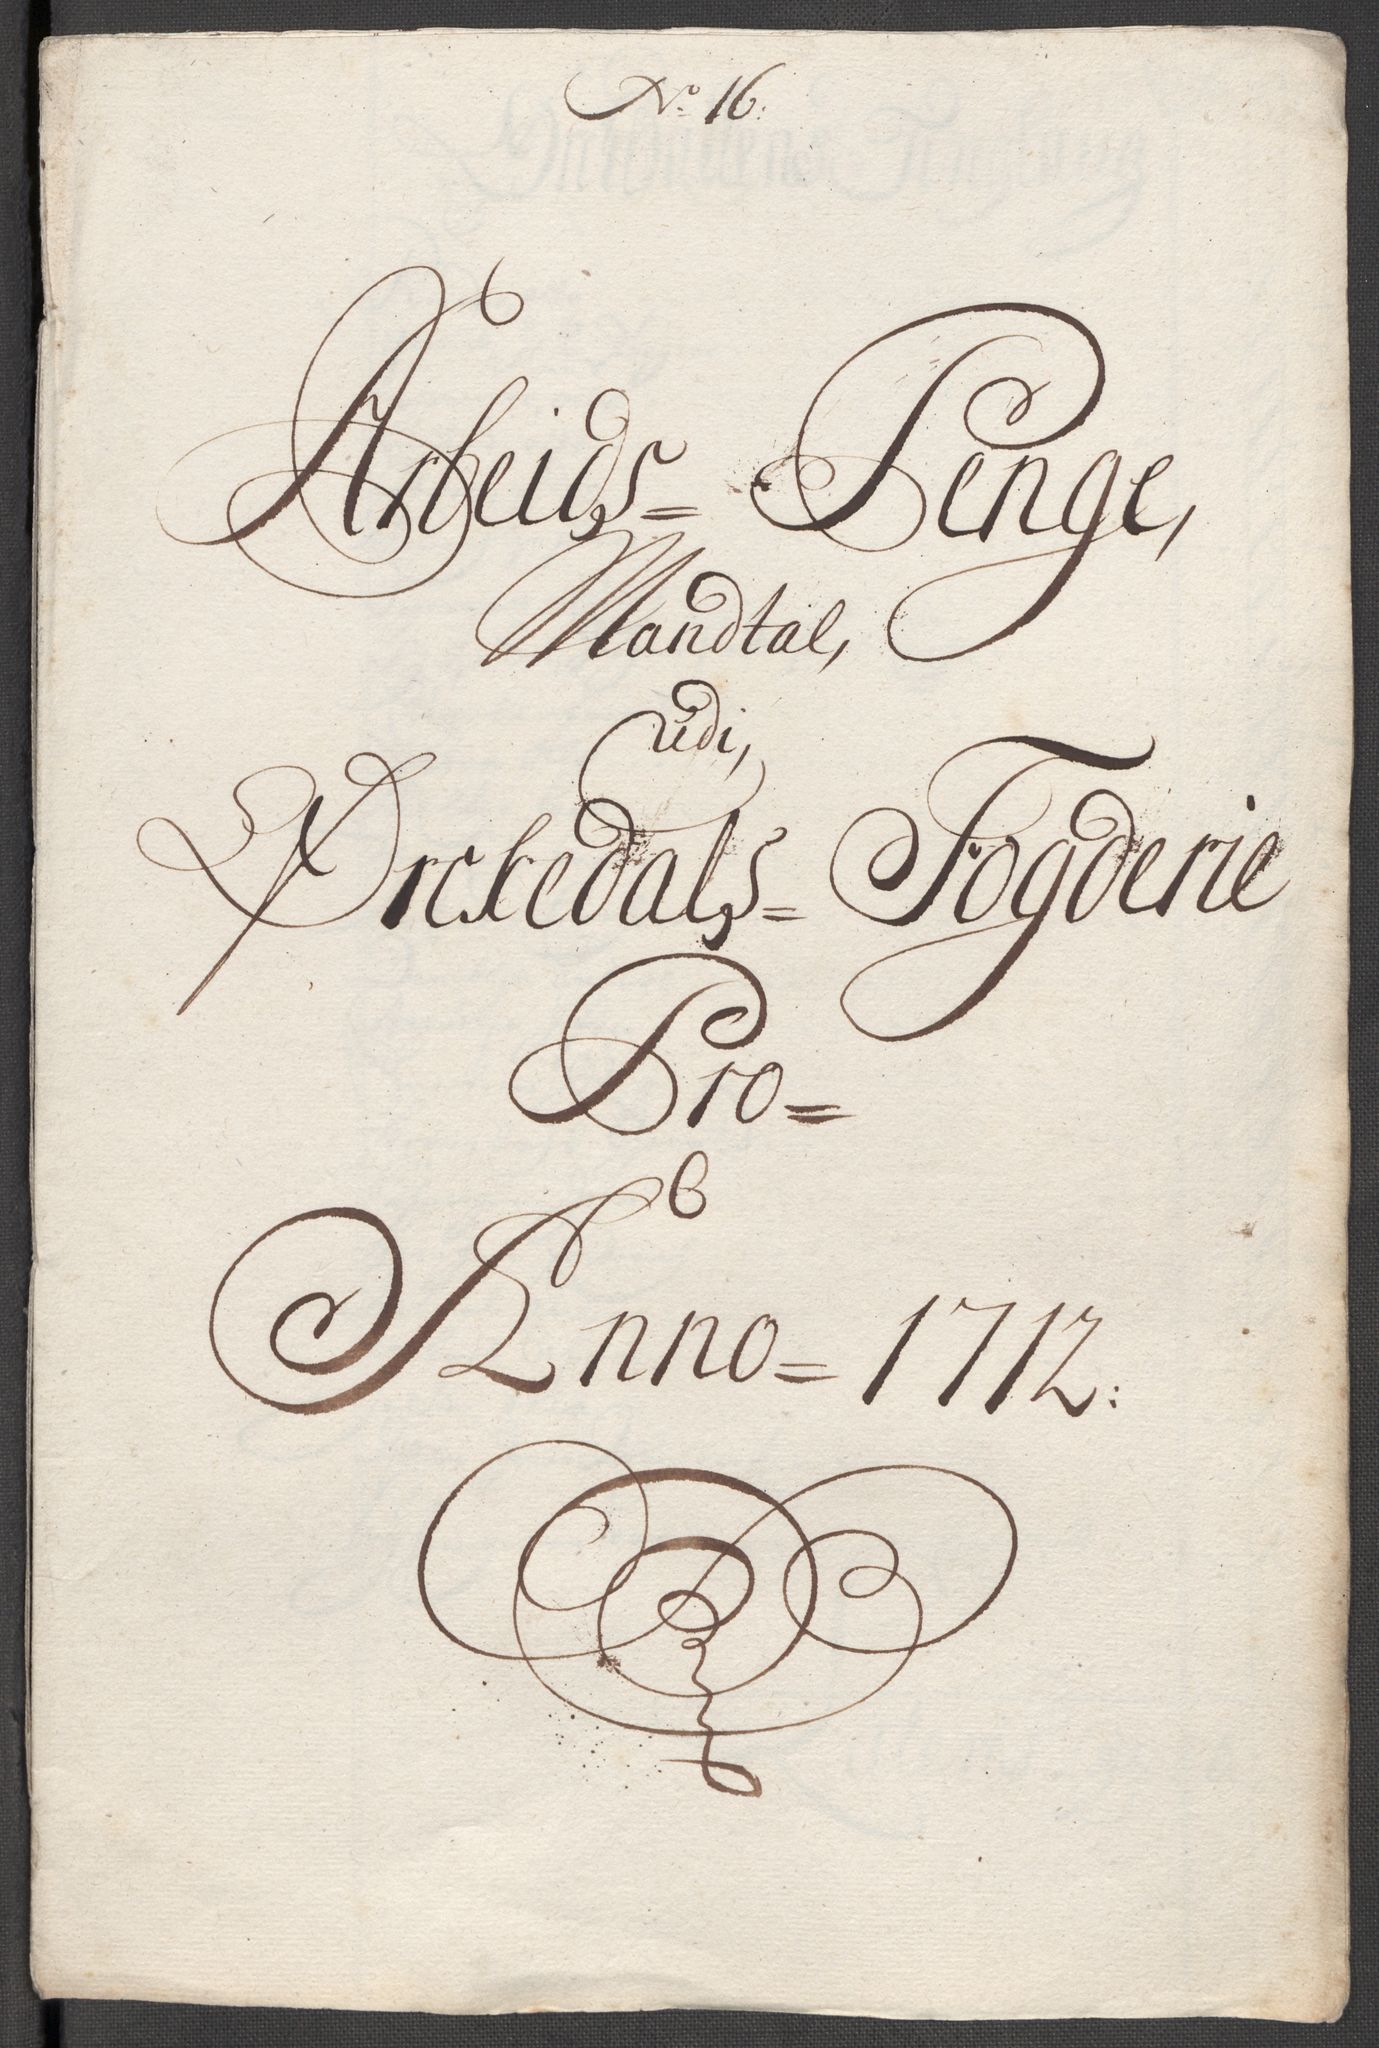 No 16:
Arbeids= Penge,
Mandtal,
udi,
Orckedals= Fogderie
Pro=
Anno= 1712: